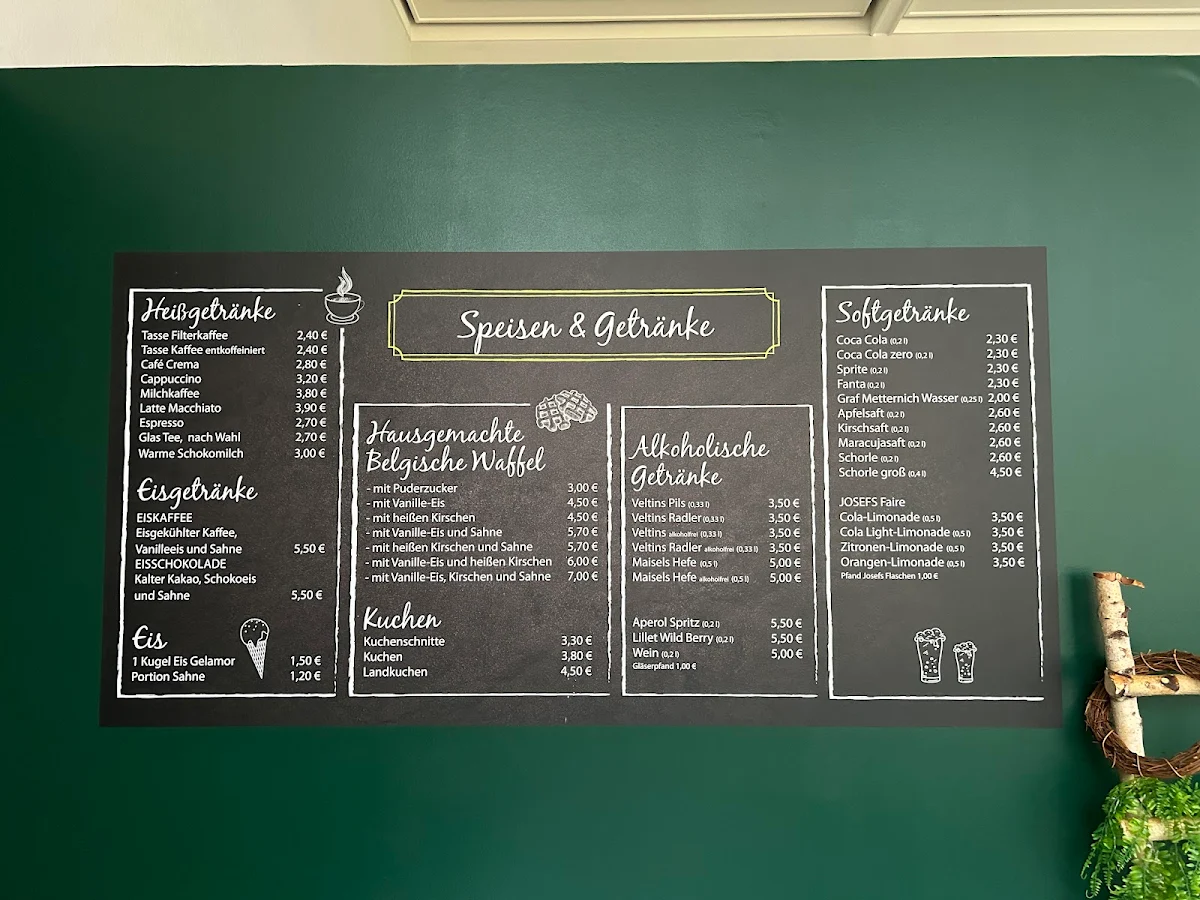 Speisen & Getränke
Heißgetränke
Tasse Filterkaffee 2,40 €
Tasse Kaffee entkoffeiniert 2,40 €
Café Crema 2,80 €
Cappuccino 3,20 €
Milchkaffee 3,80 €
Latte Macchiato 3,90 €
Espresso 2,70 €
Glas Tee, nach Wahl 2,70 €
Warme Schokomilch 3,00 €
Eisgetränke
EISKAFFEE
Eisgekühlter Kaffee,
Vanilleeis und Sahne 5,50 €
EISSCHOKOLADE
Kalter Kakao, Schokoeis
und Sahne 5,50 €
Eis
1 Kugel Eis Gelamor 1,50 €
Portion Sahne 1,20 €
Hausgemachte
Belgische Waffel
- mit Puderzucker 3,00 €
- mit Vanille-Eis 4,50 €
- mit heißen Kirschen 4,50 €
- mit Vanille-Eis und Sahne 5,70 €
- mit heißen Kirschen und Sahne 5,70 €
- mit Vanille-Eis und heißen Kirschen 6,00 €
- mit Vanille-Eis, Kirschen und Sahne 7,00 €
Kuchen
Kuchenschnitte 3,30 €
Kuchen 3,80 €
Landkuchen 4,50 €
Alkoholische
Getränke
Veltins Pils (0,33 l) 3,50 €
Veltins Radler (0,33 l) 3,50 €
Veltins alkoholfrei (0,33 l) 3,50 €
Veltins Radler alkoholfrei (0,33 l) 3,50 €
Maisels Hefe (0,5 l) 5,00 €
Maisels Hefe alkoholfrei (0,5 l) 5,00 €
Aperol Spritz (0,2 l) 5,50 €
Lillet Wild Berry (0,2 l) 5,50 €
Wein (0,2 l) 5,00 €
Gläserpfand 1,00 €
Softgetränke
Coca Cola (0,2 l) 2,30 €
Coca Cola zero (0,2 l) 2,30 €
Sprite (0,2 l) 2,30 €
Fanta (0,2 l) 2,30 €
Graf Metternich Wasser (0,25 l) 2,00 €
Apfelsaft (0,2 l) 2,60 €
Kirschsaft (0,2 l) 2,60 €
Maracujasaft (0,2 l) 2,60 €
Schorle (0,2 l) 2,60 €
Schorle groß (0,4 l) 4,50 €
JOSEFS Faire
Cola-Limonade (0,5 l) 3,50 €
Cola Light-Limonade (0,5 l) 3,50 €
Zitronen-Limonade (0,5 l) 3,50 €
Orangen-Limonade (0,5 l) 3,50 €
Pfand Josefs Flaschen 1,00 €